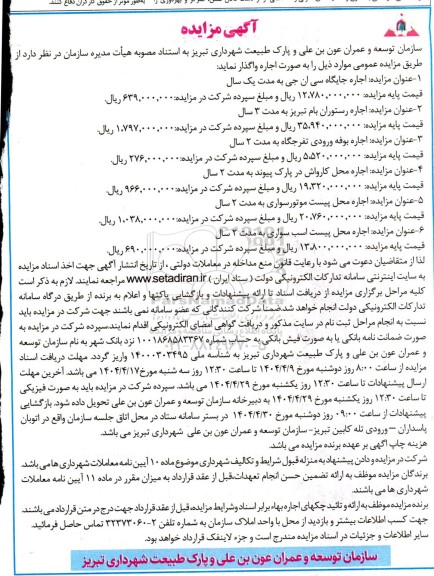 آگهی مزایده
سازمان توسعه و عمران عون بن علی و پارک طبیعت شهرداری تبریز به استناد مصوبه هیأت مدیره سازمان در نظر دارد از
طریق مزایده عمومی موارد ذیل را به صورت اجاره واگذار نماید:
۱-عنوان مزایده: اجاره جایگاه سی ان جی به مدت یک سال
قیمت پایه مزایده: ۱۲,۷۸۰,۰۰۰,۰۰۰ ریال و مبلغ سپرده شرکت در مزایده: ۶۳۹,۰۰۰,۰۰۰ ریال.
۲-عنوان مزایده: اجاره رستوران بام تبریز به مدت ۳ سال
قیمت پایه مزایده: ۳۵,۹۴۰,۰۰۰,۰۰۰ ریال و مبلغ سپرده شرکت در مزایده: ۱,۷۹۷,۰۰۰,۰۰۰ ریال.
۳-عنوان مزایده: اجاره بوفه ورودی تفرجگاه به مدت ۲ سال
قیمت پایه مزایده: ۵,۵۲۰,۰۰۰,۰۰۰ ریال و مبلغ سپرده شرکت در مزایده: ۲۷۶,۰۰۰,۰۰۰ ریال.
۴-عنوان مزایده: اجاره محل کارواش در پارک پیوند به مدت ۲ سال
قیمت پایه مزایده: ۱۹,۳۲۰,۰۰۰,۰۰۰ ریال و مبلغ سپرده شرکت در مزایده: ۹۶۶,۰۰۰,۰۰۰ ریال.
۵-عنوان مزایده: اجاره محل پیست موتورسواری به مدت ۲ سال
قیمت پایه مزایده: ۲۰,۷۶۰,۰۰۰,۰۰۰ ریال و مبلغ سپرده شرکت در مزایده: ۱,۰۳۸,۰۰۰,۰۰۰ ریال.
۶-عنوان مزایده: اجاره محل پیست اسب سواری به مدت ۲ سال
قیمت پایه مزایده: ۱۳,۸۰۰,۰۰۰,۰۰۰ ریال و مبلغ سپرده شرکت در مزایده: ۶۹۰,۰۰۰,۰۰۰ ریال.
لذا از متقاضیان دعوت می شود با رعایت قانون منع مداخله در معاملات دولتی ، از تاریخ انتشار آگهی جهت اخذ اسناد مزایده
به سایت اینترنتی سامانه تدارکات الکترونیکی دولت (ستاد ایران) www.setadiran.ir مراجعه نمایند. لازم به ذکر است
کلیه مراحل برگزاری مزایده از دریافت اسناد تا ارائه پیشنهادات و بازگشایی پاکتها و اعلام به برنده از طریق درگاه سامانه
تدارکات الکترونیکی دولت انجام خواهد شد. ضمناً شرکت کنندگانی که عضو سامانه نمی باشند جهت شرکت در مزایده باید
نسبت به انجام مراحل ثبت نام در سایت مذکور و دریافت گواهی امضای الکترونیکی اقدام نمایند. سپرده شرکت در مزایده به
صورت ضمانت نامه بانکی یا به صورت فیش بانکی به حساب شماره ۱۰۰۱۸۶۸۵۸۳۳۶۷ نزد بانک شهر به نام سازمان توسعه
و عمران عون بن علی و پارک طبیعت شهرداری تبریز به شناسه ملی ۱۴۰۰۰۳۰۳۴۹۵ واریز گردد. مهلت دریافت اسناد
مزایده از ساعت ۸:۰۰ روز دوشنبه مورخ ۱۴۰۴/۴/۹ تا ساعت ۱۲:۳۰ روز سه شنبه مورخ ۱۴۰۴/۴/۱۷ می باشد. آخرین مهلت
ارسال پیشنهادات تا ساعت ۱۲:۳۰ روز یکشنبه مورخ ۱۴۰۴/۴/۲۹ می باشد. سپرده شرکت در مزایده باید به صورت فیزیکی
تا ساعت ۱۲:۳۰ روز یکشنبه مورخ ۱۴۰۴/۴/۲۹ به دبیرخانه سازمان توسعه و عمران عون بن علی تحویل داده شود. بازگشایی
پیشنهادات از ساعت ۰۹:۰۰ روز دوشنبه مورخ ۱۴۰۴/۴/۳۰ در بستر سامانه ستاد در محل اتاق جلسه سازمان واقع در اتوبان
پاسداران – ورودی تله کابین تبریز- سازمان توسعه و عمران عون بن علی شهرداری تبریز می باشد.
هزینه چاپ آگهی بر عهده برنده مزایده می باشد.
شرکت در مزایده و دادن پیشنهاد به منزله قبول شرایط و تکالیف شهرداری موضوع ماده ۱۰ آیین نامه معاملات شهرداری ها می باشد.
برندگان مزایده موظف به ارائه تضمین حسن انجام تعهدات، قبل از عقد قرارداد به میزان مقرر در ماده ۱۱ آیین نامه معاملات
شهرداری ها می باشند.
برنده مزایده موظف به ارائه و تائید چکهای اجاره بهاء برابر اسناد و شرایط مزایده، قبل از عقد قرارداد جهت درج در متن قرارداد می باشند.
جهت کسب اطلاعات بیشتر و بازدید از محل با واحد املاک سازمان به شماره تلفن ۲-۳۲۳۷۳۰۶۰ تماس حاصل فرمائید.
سایر اطلاعات و جزئیات در اسناد مزایده مندرج است و جزء لاینفک قرارداد خواهد بود.
سازمان توسعه و عمران عون بن علی و پارک طبیعت شهرداری تبریز